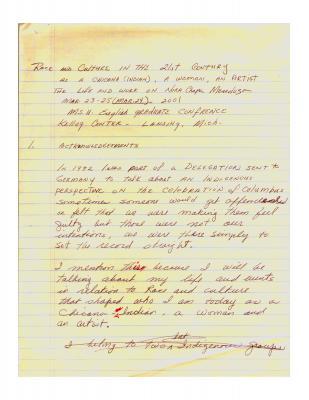 Race and Culture in the 21st Century
as a Chicana (Indian), a woman, an artist
The life and work on Nora Chapa Mendoza
Mar 23-25 (Mar 24), 2001
M.S.U. English graduate conference
Kellogg Center - Lansing, Mich.
1. Acknowledgements
In 1992 I was part of a delegation sent to
Germany to talk about an Indigenous
perspective on the celebration of Columbus
sometimes someone would get offended
or felt that we were making them feel
guilty but those were not our
intentions, we were there simply to
set the record straight.
I mention this because I will be
talking about my life and events
in relation to Race and culture
that shaped who I am today as a
Chicana - Indian - a woman and
an artist.
I belong to Indigenous groups